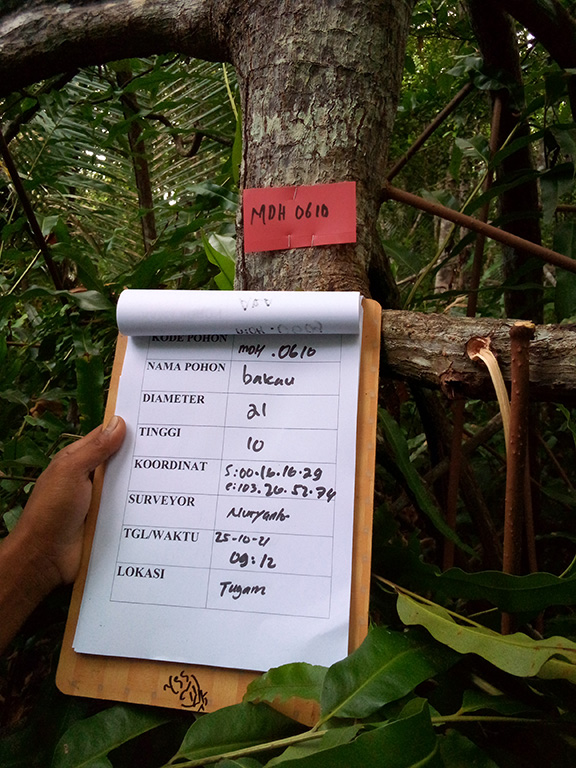 MDH 0610
KODE POHON MDH . 0610
NAMA POHON bakau
DIAMETER 21
TINGGI 10
KOORDINAT S:00.16.16.29
e:103.26.52.74
SURVEYOR Nuryanto
TGL/WAKTU 25-10-21
09:12
LOKASI Tugam